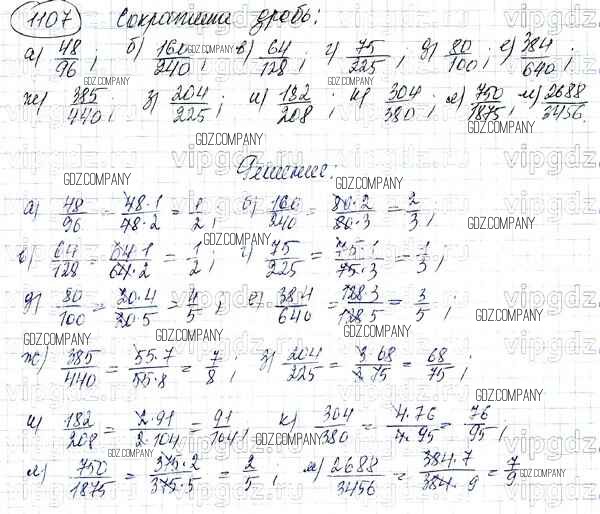 1107 Сократите дробь:
а) 48/96; б) 160/240; в) 64/128; г) 75/225; д) 80/100; е) 384/640;
ж) 385/440; з) 204/225; и) 182/208; к) 304/380; л) 750/1875; м) 2688/3456.
Решение:
а) 48/96 = 48·1/48·2 = 1/2; б) 160/240 = 80·2/80·3 = 2/3;
в) 64/128 = 64·1/64·2 = 1/2; г) 75/225 = 75·1/75·3 = 1/3;
д) 80/100 = 20·4/20·5 = 4/5; е) 384/640 = 128·3/128·5 = 3/5;
ж) 385/440 = 55·7/55·8 = 7/8; з) 204/225 = 3·68/3·75 = 68/75;
и) 182/208 = 2·91/2·104 = 91/104; к) 304/380 = 4·76/4·95 = 76/95;
л) 750/1875 = 375·2/375·5 = 2/5; м) 2688/3456 = 384·7/384·9 = 7/9
GDZ.COMPANY
vipgdz